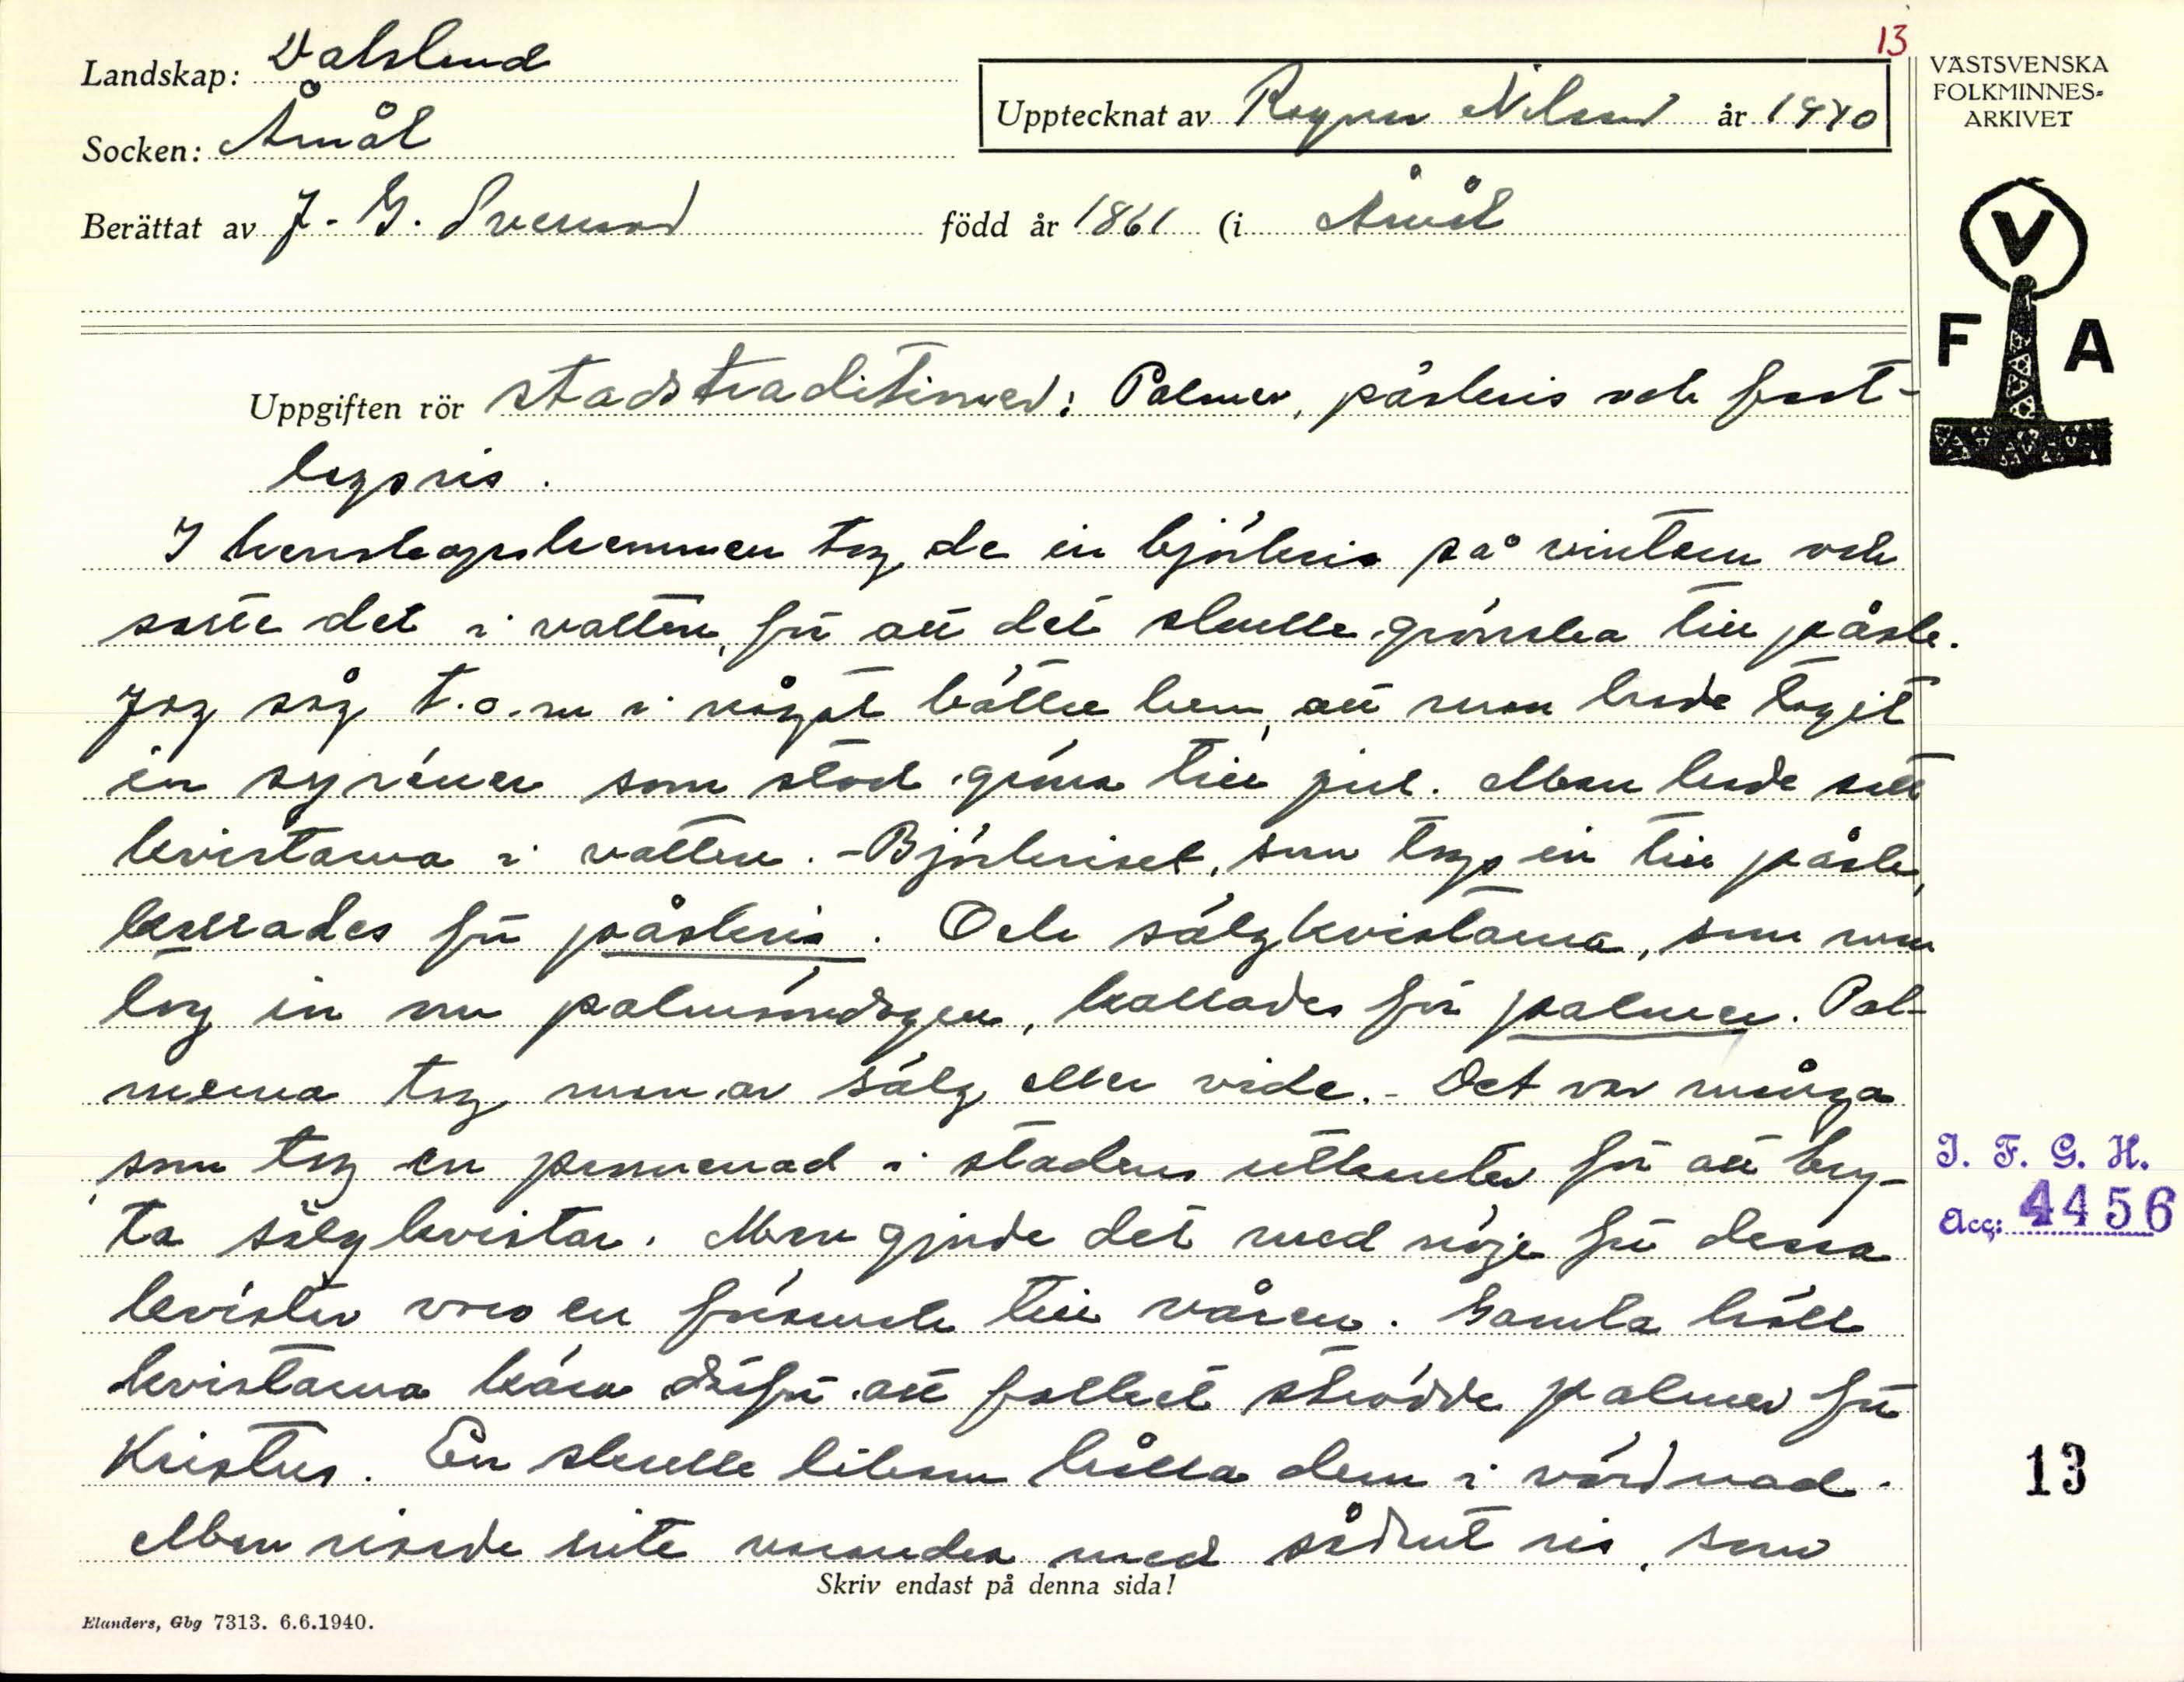 13
Landskap: Dalsland
Socken: Åmål
Upptecknat av Ragnar Nilsson år 1940
Berättat av J. G. Svensson född år 1861 (i Åmål
VÄSTSVENSKA
FOLKMINNES-
ARKIVET
V
F A
Uppgiften rör stadstraditioner: Palmer, påskris och fast-
lagsris.
I herrskapshemmen tog de in björkris på vintern och
satte det i vatten, för att det skulle grönska till påsk.
Jag såg t.o.m i något bättre hem, att man hade tagit
in syréner som stod gröna till jul. Man hade satt
kvistarna i vatten. - Björkriset, som togs in till påsk,
kallades för påskris. Och sälgkvistarna, som man
tog in om palmsöndagen, kallades för palmer. Pal-
merna tog man av sälg eller vide. - Det var många
som tog en promenad i stadens utkanter för att bry-
ta sälgkvistar. Man gjorde det med nöje för dessa
kvister voro en försmak till våren. Gamla höll
kvistarna kära därför att folket strödde palmer för
Kristus. En skulle liksom hålla dem i vördnad.
Man risade inte varandra med sådant ris, som
Skriv endast på denna sida!
Elanders, Gbg 7313. 6.6.1940.
I. F. G. H.
Acc: 4456
13